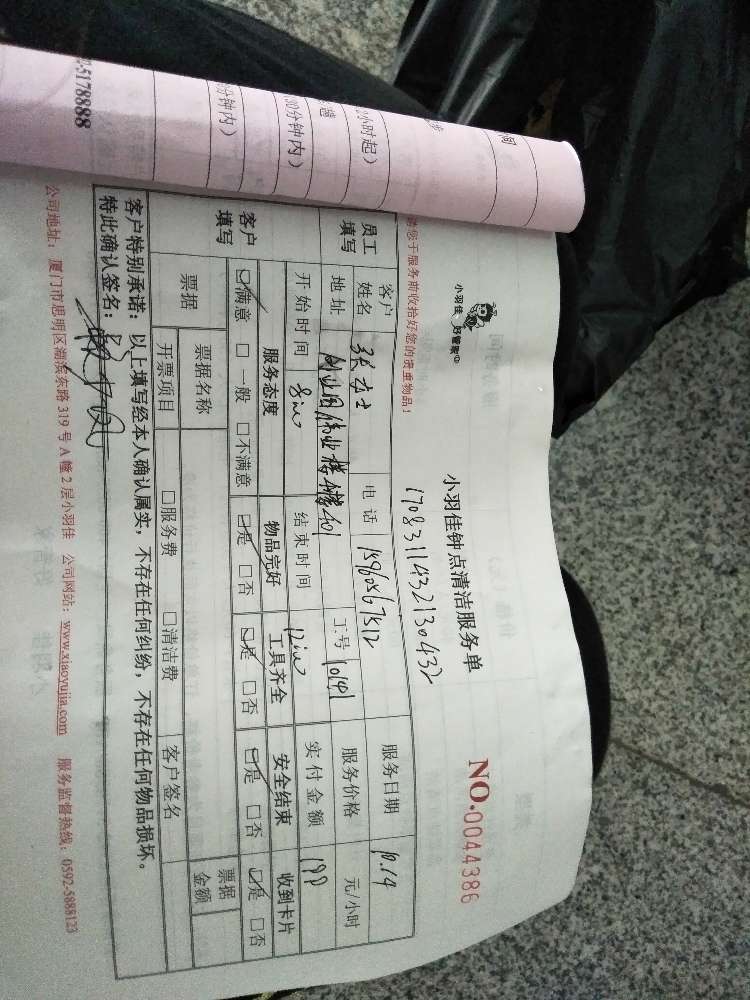 间
步
2小时起)
趟
30分钟内)
分钟内)
2-5178888
小羽佳 好管家
小羽佳钟点清洁服务单
NO.0044386
1708311432130432
请您于服务前收拾好您的贵重物品!
员工填写
客户姓名 张女士 电话 15960567512 服务日期 10.14
地址 创业园伟业楼A楼401 工号 10141 服务价格 元/小时
开始时间 8:00 结束时间 12:00 实付金额 190
客户填写
服务态度 物品完好 工具齐全 安全结束 收到卡片
☑满意 □一般 □不满意 ☑是 □否 ☑是 □否 ☑是 □否 ☑是 □否
票据 票据名称 □服务费 □清洁费 客户签名 票据金额
开票项目
客户特别承诺:以上填写经本人确认属实,不存在任何纠纷,不存在任何物品损坏。
特此确认签名:
公司地址:厦门市思明区湖滨东路319号A幢2层小羽佳 公司网站:www.xiaoyujia.com 服务监督热线:0592-5888123